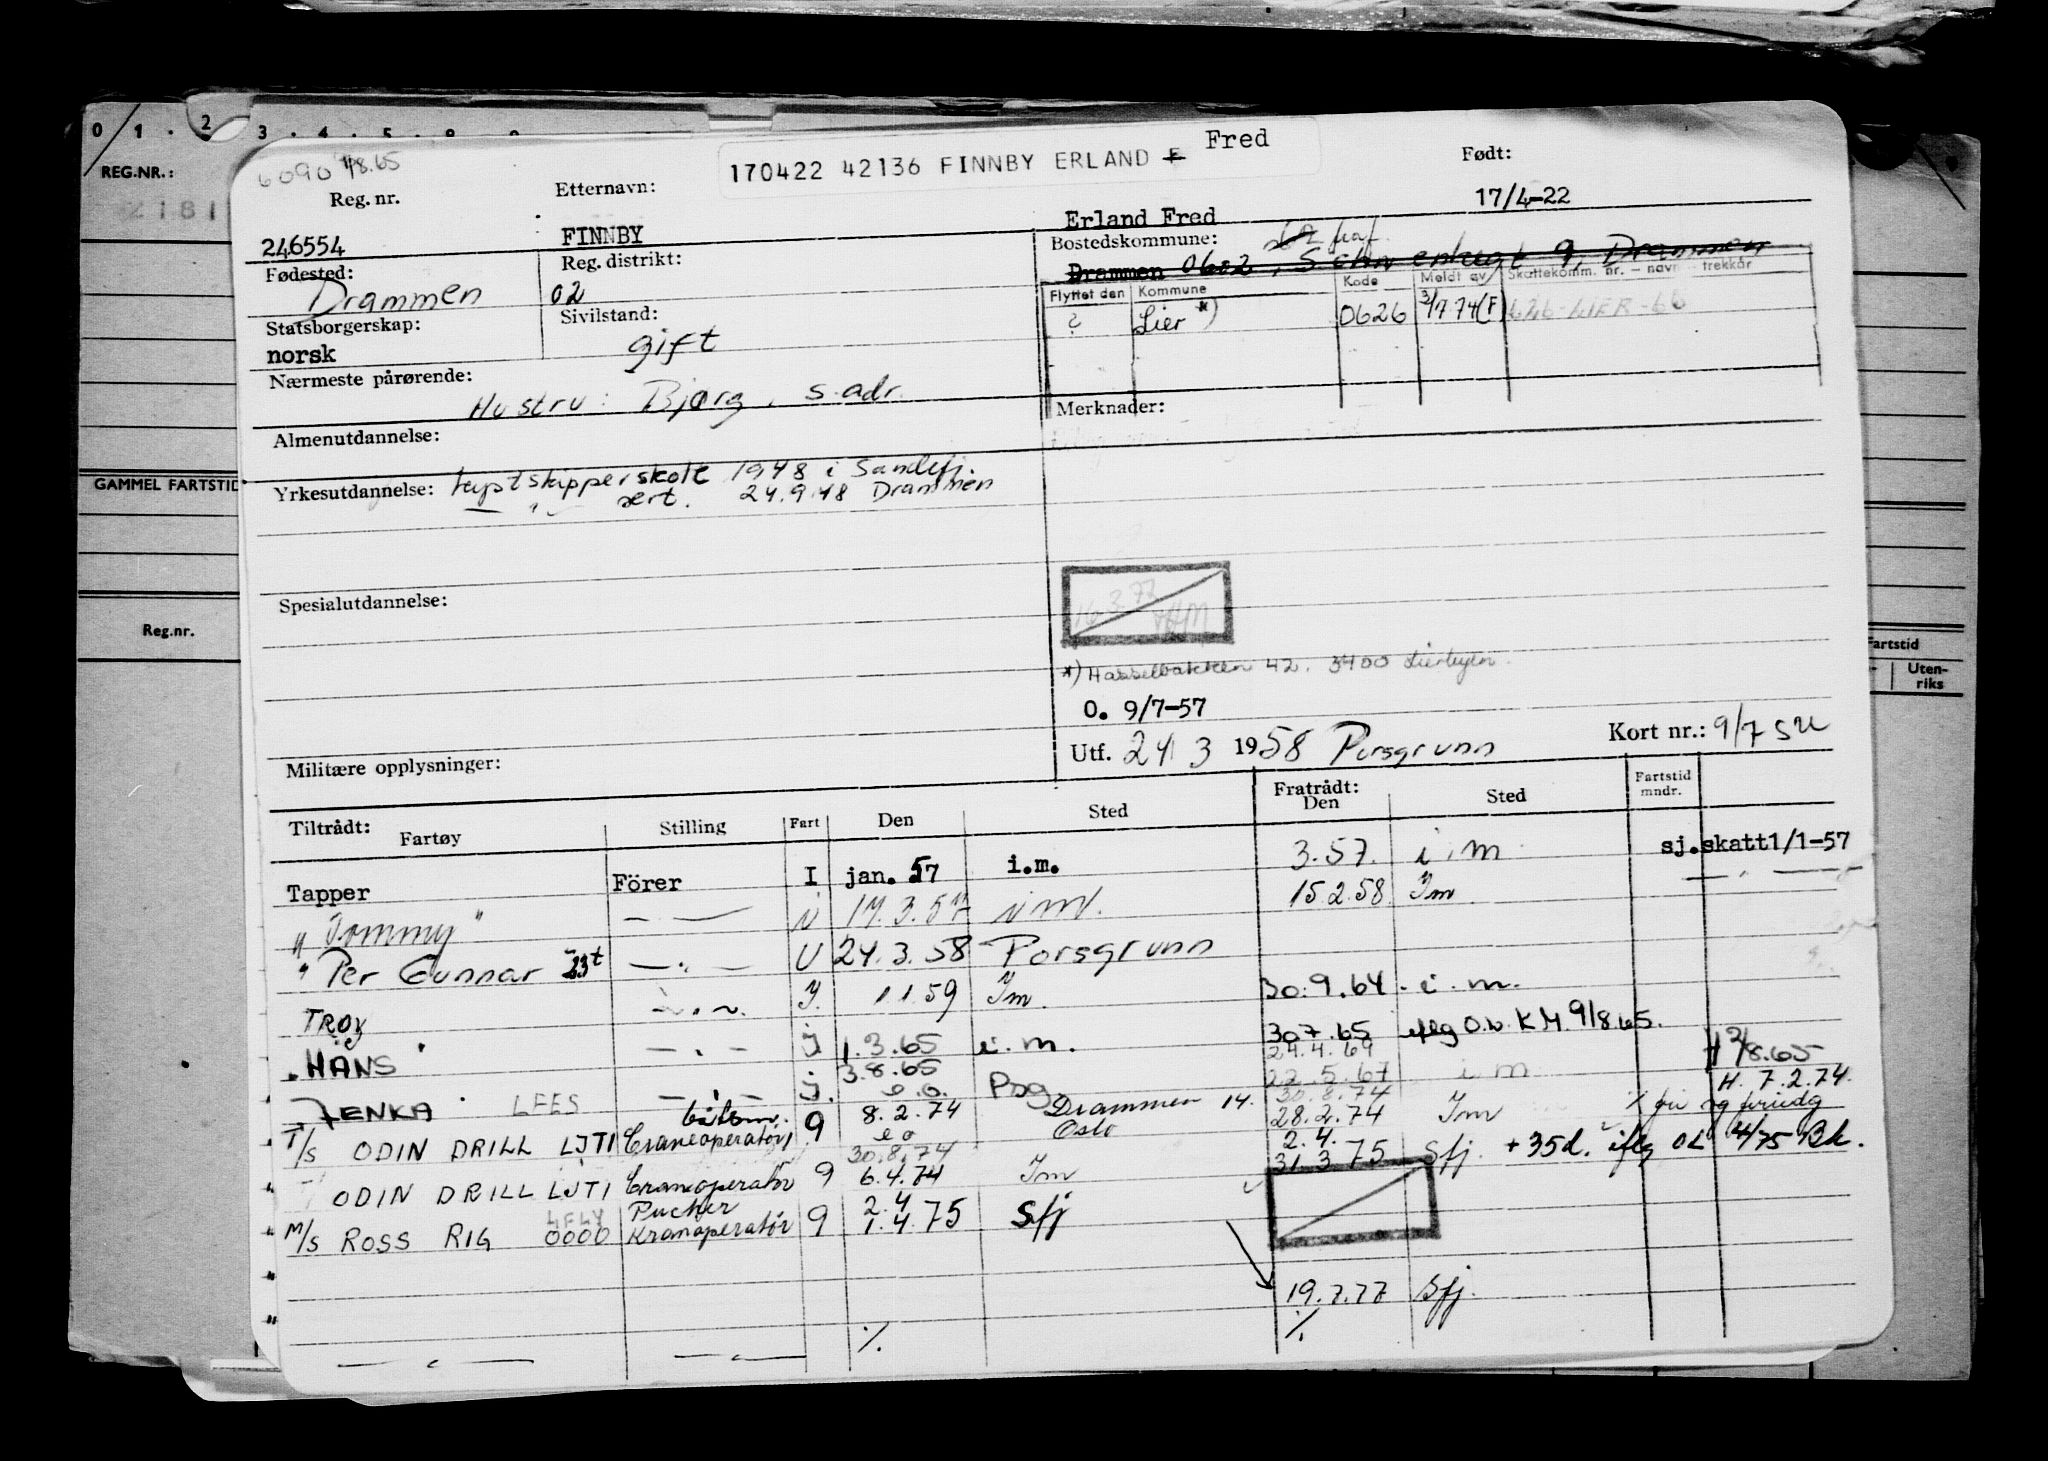 0 1 . 2 3 . 4 . 5 . 8 . 9
REG.NR.:
2181
GAMMEL FARTSTID
Reg.nr.
Fartstid
Uten-
riks
6090 8.65
170422 42136 FINNBY ERLAND F Fred
Reg. nr. Etternavn: Født:
246554 FINNBY Erland Fred 17/4-22
Fødested: Reg. distrikt: Bostedskommune:
Drammen 02 Drammen 0602, 9, Drammen
Flyttet den Kommune Kode Meldt av Skattekomm. nr. – navn trekkår
? Lier *) 0626 3/7 74 (F) 626-LIER-68
Statsborgerskap: Sivilstand:
norsk gift
Nærmeste pårørende:
Hustru: Bjørg, s. adr.
Almenutdannelse: Merknader:
Yrkesutdannelse: kystskipperskole 1948 i Sandefj.
— " — sert. 24.9.48 Drammen
Spesialutdannelse:
16 3 77
*) Hasselbakken 42. 3400 Lierbyen.
O. 9/7-57
Utf. 24 3 1958 Porsgrunn Kort nr.: 9/7 su
Militære opplysninger:
Tiltrådt: Fartøy Stilling Fart Den Sted Fratrådt: Den Sted Fartstid mndr.
Tapper Förer I jan. 57 i.m. 3.57. i.m sj.skatt1/1-57
" Tommy" — " — 17.3.57 i m. 15.2.58 Im — " —
" Per Gunnar — " — U 24.3.58 Porsgrunn
Troy — " — I. 1 1.59 Im. 30.9.64. i.m.
"HANS" — " — I 1.3.65 i.m. 30.7.65 iflg O.W. KM. 9/8.65.
24.4.69 H 2/8.65
JENKA LEES — " — I. 3.8.65 Psg 22.5.67 i m H. 7.2.74.
T/s ODIN DRILL LJTI Craneoperatör 9 8.2.74 Drammen 14. 28.2.74 Im
Oslo
30.8.74 2.4.
ODIN DRILL LJTI Craneoperatör 9 6.4.74 Im 31.3 75 Sfj. +35d. iflg OL 4/75 Bk.
Pucher 2.4
M/s ROSS RIG LFLY 0000 Kranoperatör 9 1.4.75 Sfj
19.7.77 Sfj.
— " — — " — %. %.